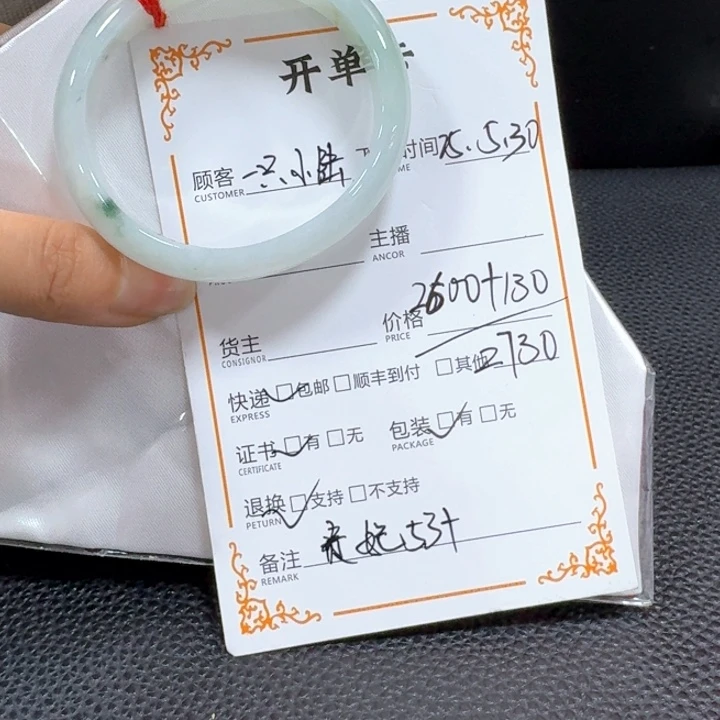 开单
顾客 小陆 时间 25.5.30
CUSTOMER ME
主播
ANCOR
2600+130
货主 价格
CONSIGNOR PRICE
2730
快递 包邮 顺丰到付 其他
EXPRESS
证书 有 无 包装 有 无
CERTIFICATE PACKAGE
退换 支持 不支持
PETURN
备注 贵妃53+
REMARK